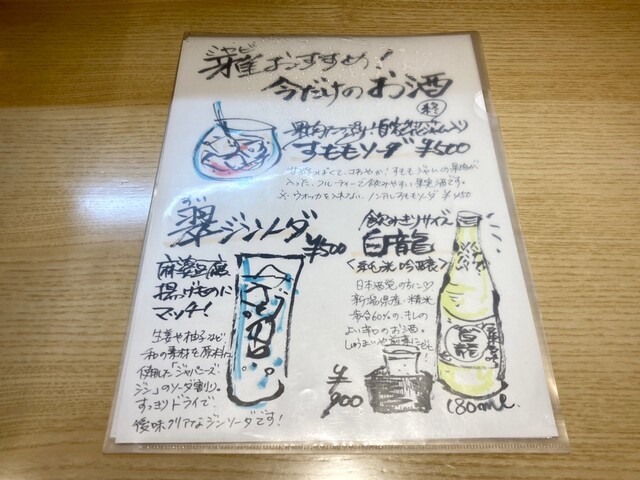 ジャビ
雅おすすめ!
今だけのお酒
果肉たっぷり!自家製ジャム入り
すももソーダ ¥500
甘ずっぱくて、さわやか!すももジャムの果肉が
入った、フルーティーで飲みやすい果実酒です。
※ウォッカを入れない、ノンアルすももソーダ ¥450
翠ジンソーダ
¥500
麻婆豆腐
揚げものに
マッチ!
生姜や柚子など
和の素材を原料に
使用した「ジャパニーズ
ジン」のソーダ割り。
すっきりドライで
後味クリアなジンソーダです!
飲みきりサイズ
白龍
<純米吟醸>
日本酒党の方に♡
新潟県産・精米
歩合60%の、
よい辛口のお酒。
¥900
白龍
180ml